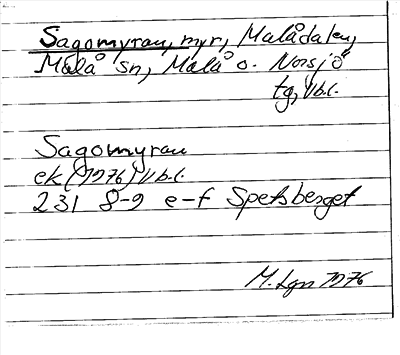 Sagomyrau, myr, Malådalen,
Malå sn, Malå o. Norsjö
tg, Vb.l.
Sagomyrau
ek (1976) Vb.l.
231 8-9 e-f Spetsberget
M. Lgn 1976